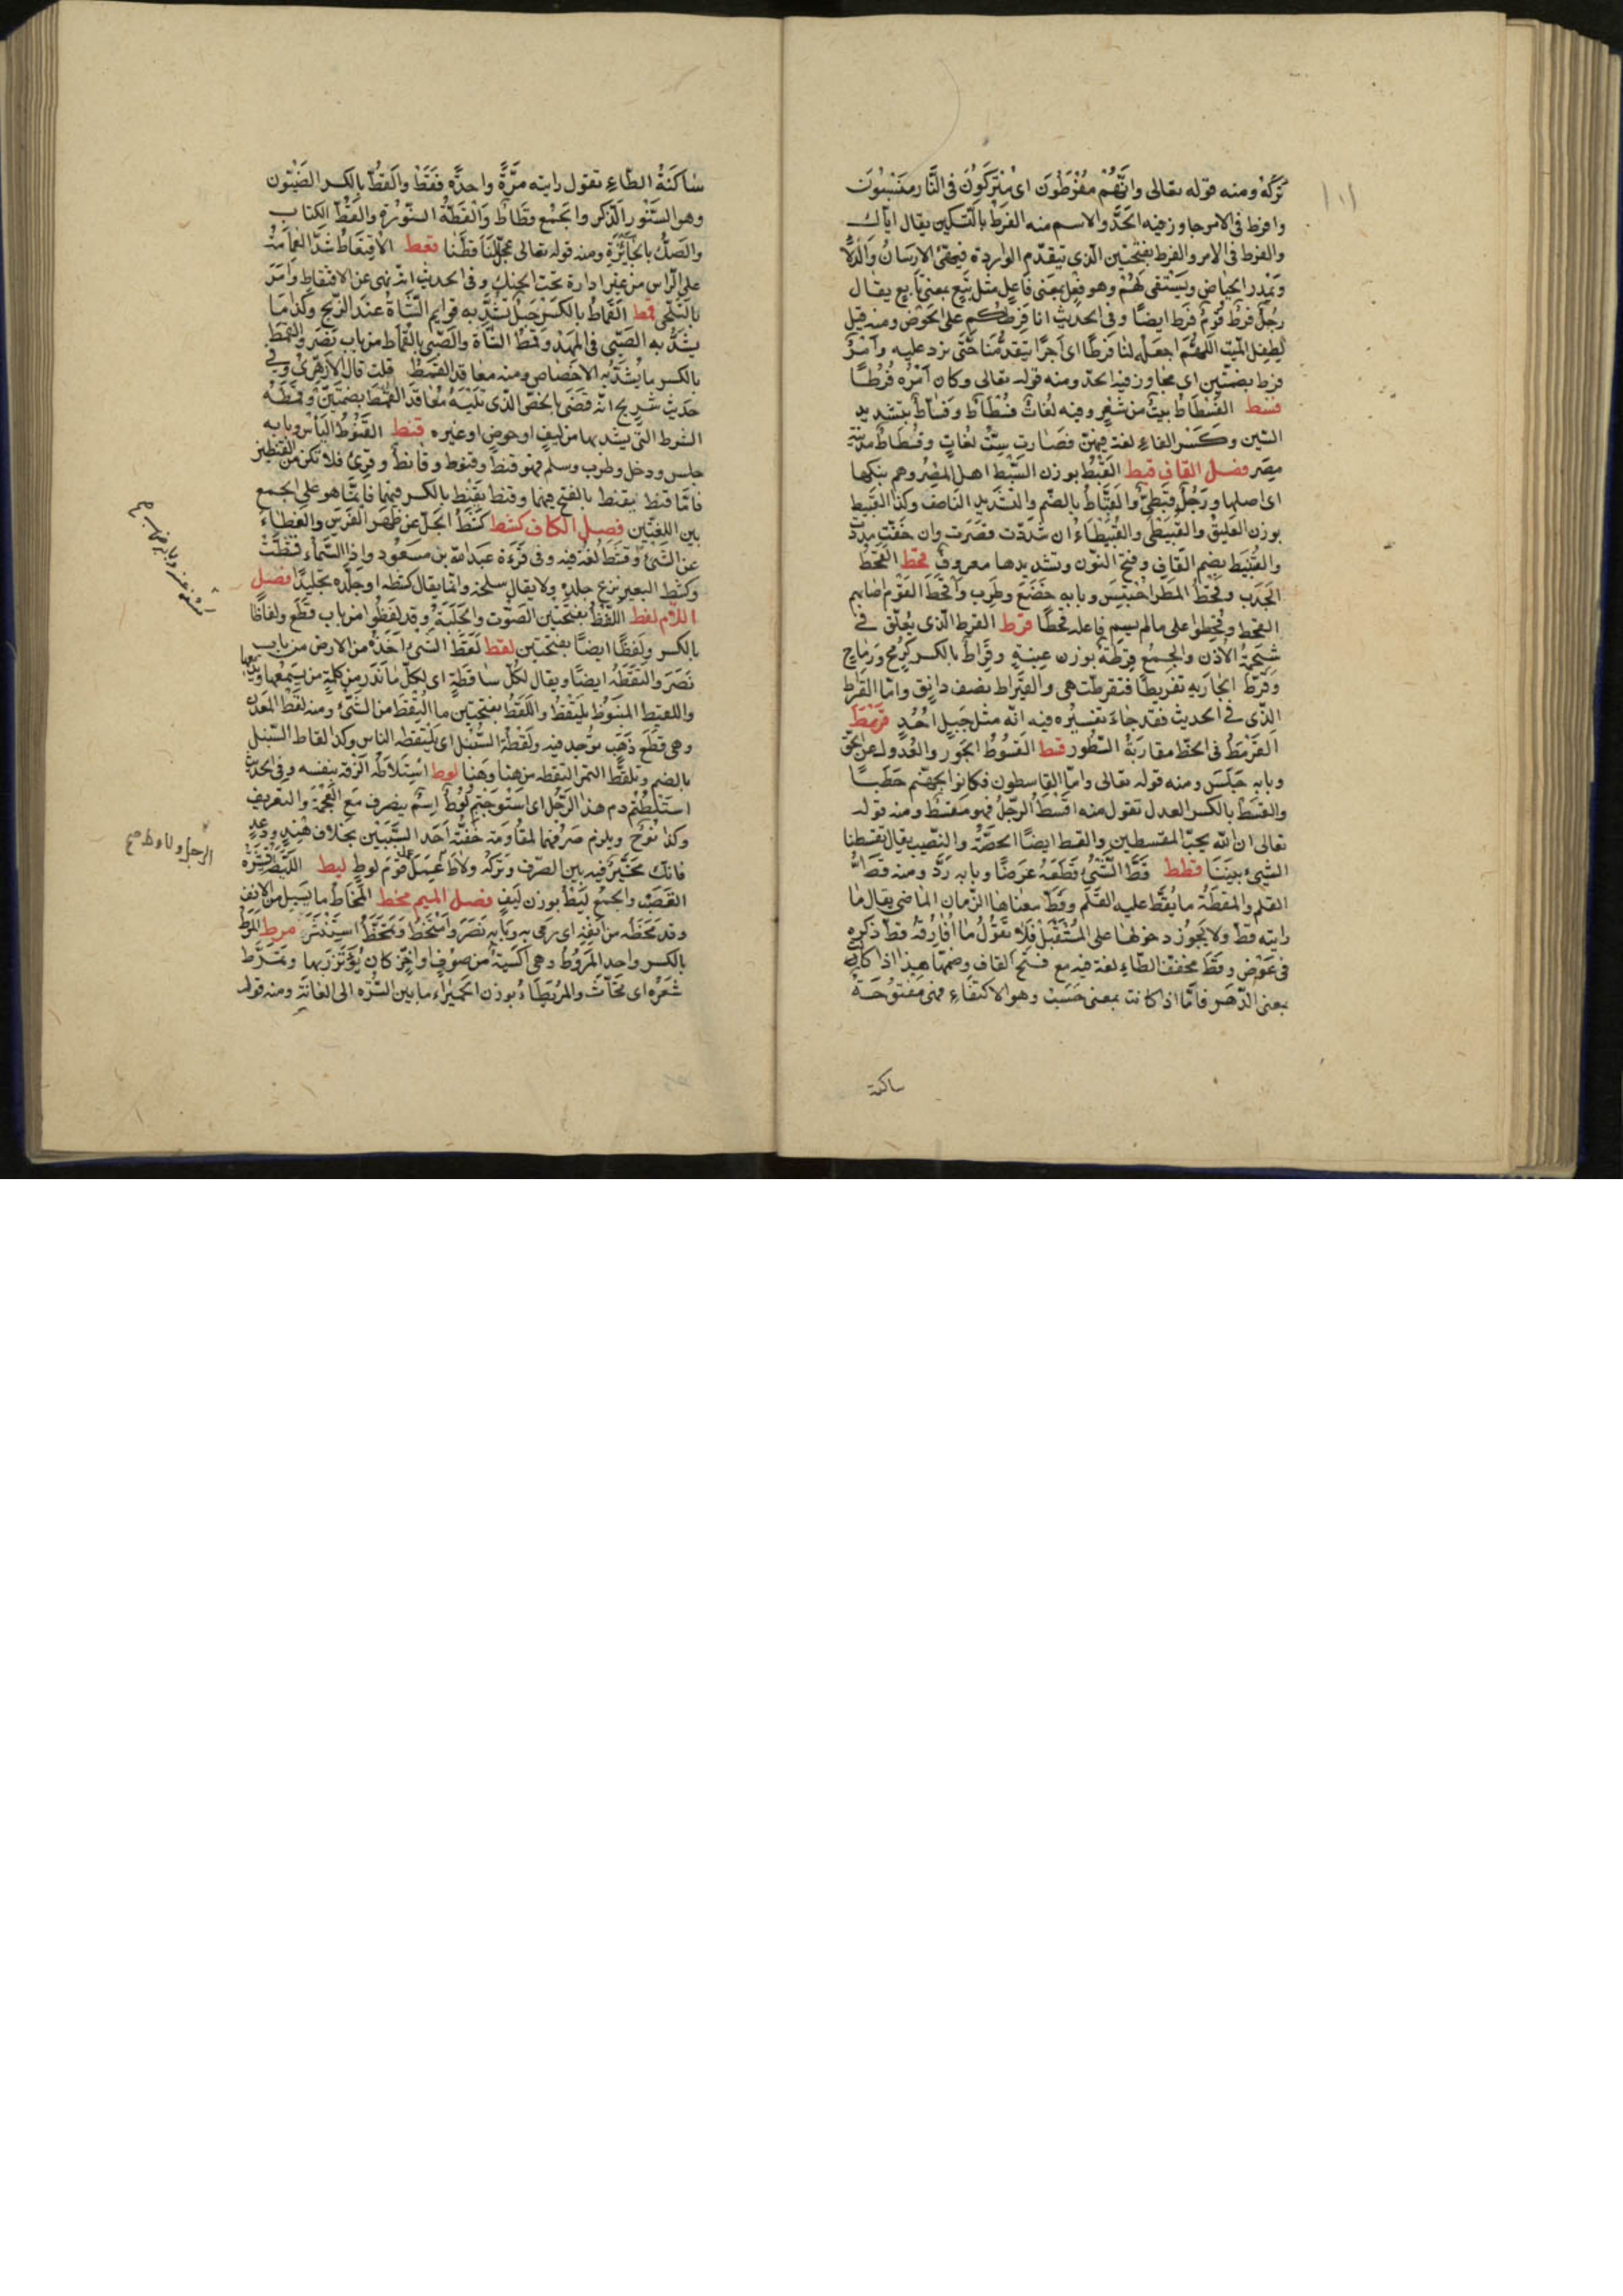 ١٠١
تركه ومنه قوله تعالى وانّهم مفرطون اى متركون فى النّار منسيون
وافرط فى الامر جاوز فيه الحدّ والاسم منه الفرط بالتسكين يقال ايّاك
والفرط فى الامر والفرط بفتحتين الّذى يتقدّم الواردة فيهيّئ الارسان والدّلاء
ويمدر الحياض ويستقى لهم وهو فعل بمعنى فاعل مثل تبع بمعنى تابع يقال
رجل فرط وقوم فرط ايضا وفى الحديث انا فرطكم على الحوض ومنه قيل
لطفل الميّت اللّهمّ اجعله لنا فرطا اى اجرا يتقدّمنا حتّى نرد عليه وامر
فرط بضمّتين اى مجاوز فيه الحدّ ومنه قوله تعالى وكان امره فرطا
فسط الفسطاط بيت من شعر وفيه لغات فسطاط وفستاط وفساط بتشديد
السّين وكسر الفاء لغة فيهنّ فصارت ستّ لغات وفسطاط مدينة
مصر فصل القاف قبط القبط بوزن السّبط اهل المصر وهم بنكها
اى اصلها ورجل قبطىّ والقبّاط بالضّم والتّشديد النّاصف وكذا القبّيط
بوزن العلّيق والقبّيطى والقبيطاء ان شدّدت قصرت وان خفّفت مددت
والقنّبيط بضم القاف وفتح النّون وتشديدها معروف قحط القحط
الجدب وقحط المطر احتبس وبابه خضع وطرب واقحط القوم اصابهم
القحط وقحطوا على مالم يسم فاعله قحطا قرط القرط الّذى يعلّق فى
شحمة الاذن والجمع قرطة بوزن عنبة وقراط بالكسر كرمح ورماح
وقرّط الجارية تقريطا فتقرطت هى والقيراط نصف دانق وامّا القيراط
الّذى فى الحديث فقد جاء تفسيره فيه انّه مثل جبل احد قرمط
القرمطة فى الخطّ مقاربة السّطور قسط القسوط الجور والعدول عن الحقّ
وبابه جلس ومنه قوله تعالى وامّا القاسطون فكانوا لجهنّم حطبا
والقسط بالكسر العدل تقول منه اقسط الرّجل فهو مقسط ومنه قوله
تعالى ان الله يحبّ المقسطين والقسط ايضا الحصّة والنّصيب يقال تقسطنا
الشّىء بيننا قطط قطّ الشّىء قطعه عرضا وبابه ردّ ومنه قطّ
القلم والمقطّة ما يقطّ عليه القلم وقطّ معناها الزّمان الماضى يقال ما
رايته قطّ ولا يجوز دخولها على المستقبل فلا تقول ما افارقه قطّ ذكره
فى عوض وقط مخفّف الطّاء لغة فيه مع فتح القاف وضمّها هذا اذا كانت
بمعنى الدّهر فامّا اذا كانت بمعنى حسب وهو الاكتفاء فهى مفتوحة
ساكنة
ساكنة الطّاء تقول رايته مرّة واحدة فقط والقطّ بالكسر الضّيون
وهو السّنّور الذّكر والجمع قطاط والقطّة السّنّورة والقطّ الكتاب
والصّكّ بالجائزة ومنه قوله تعالى عجّل لنا قطّنا قعط الاقتعاط شدّ العمامة
على الرّاس من غير ادارة تحت الحنك وفى الحديث انّه نهى عن الاقتعاط وامر
بالتّلحّى قمط القماط بالكسر حبل يشدّ به قوايم الشّاة عند الذّبح وكذا ما
يشدّ به الصّبى فى المهد وقمط الشّاة والصّبى بالقماط من باب نصر والقمط
بالكسر ما يشدّ به الاخصاص ومنه معاقد القمط قلت قال الازهرى وفى
حديث شريح انّه قضى بالخصّ الّذى تليه معاقد القمط بضمّتين وقمطه
الشرط التى يشدّ بها من ليف او خوص او غيره قنط القنوط اليأس وبابه
جلس ودخل وطرب وسلم فهو قنط وقنوط وقانط وقرئ فلا تكن من القنطين
فامّا قنط يقنط بالفتح فيهما وقنط يقنط بالكسر فيهما فانّما هو على الجمع
بين اللّغتين فصل الكاف كشط كشط الجلّ عن ظهر الفرس والغطاء
عن الشّىء وقشط لغة فيه وفى قرءة عبد الله بن مسعود واذا السّماء قشطت
وكشط البعير نزع جلده ولا يقال سلخه وانّما يقال كشطه او جلّده تجليدا فصل
اللّام لغط اللّغط بفتحتين الصّوت والجلبة وقد لغطوا من باب قطع ولغاطا
بالكسر ولغطا ايضا بفتحتين لقط لقط الشّىء اخذه من الارض من باب
نصر والتقطه ايضا ويقال لكلّ ساقطة اى لكلّ ما ندر من كلمة من يسمعها ويذيعها
واللقيط المنبوذ يلتقط واللّقط بفتحتين ما التقط من الشّىء ومنه لقط المعدن
وهى قطع ذهب توجد فيه ولقطة السّنبل اى يلتقطه الناس وكذا لقاط السّنبل
بالضم وتلقّط التمر التقطه من هنا وهنا لوط استلاطه الزقه بنفسه وفى الحديث
استلطتم دم هذا الرّجل اى استوجبتم لوط اسم ينصرف مع العجمة والتعريف
وكذا نوح ويلزم صرفهما لمقاومة خفّته احد السّببين بخلاف هند ودعد
فانّك مخيّر فيه بين الصّرف وتركه ولاط عمل عمل قوم لوط ليط اللّيطة قشرة
القصبة والجمع ليط بوزن ليف فصل الميم مخط المخاط ما يسيل من الانف
وقد مخطه من انفه اى رمى به وبابه نصر وامتخط وتمخّط استنثر مرط المرط
بالكسر واحد المروط وهى اكسية من صوف او خزّ كان يؤتزر بها وتمرّط
شعره اى تحاتّ والمريطاء بوزن الحميراء ما بين السّرّة الى العانة ومنه قوله
الرجل ولاوط صح